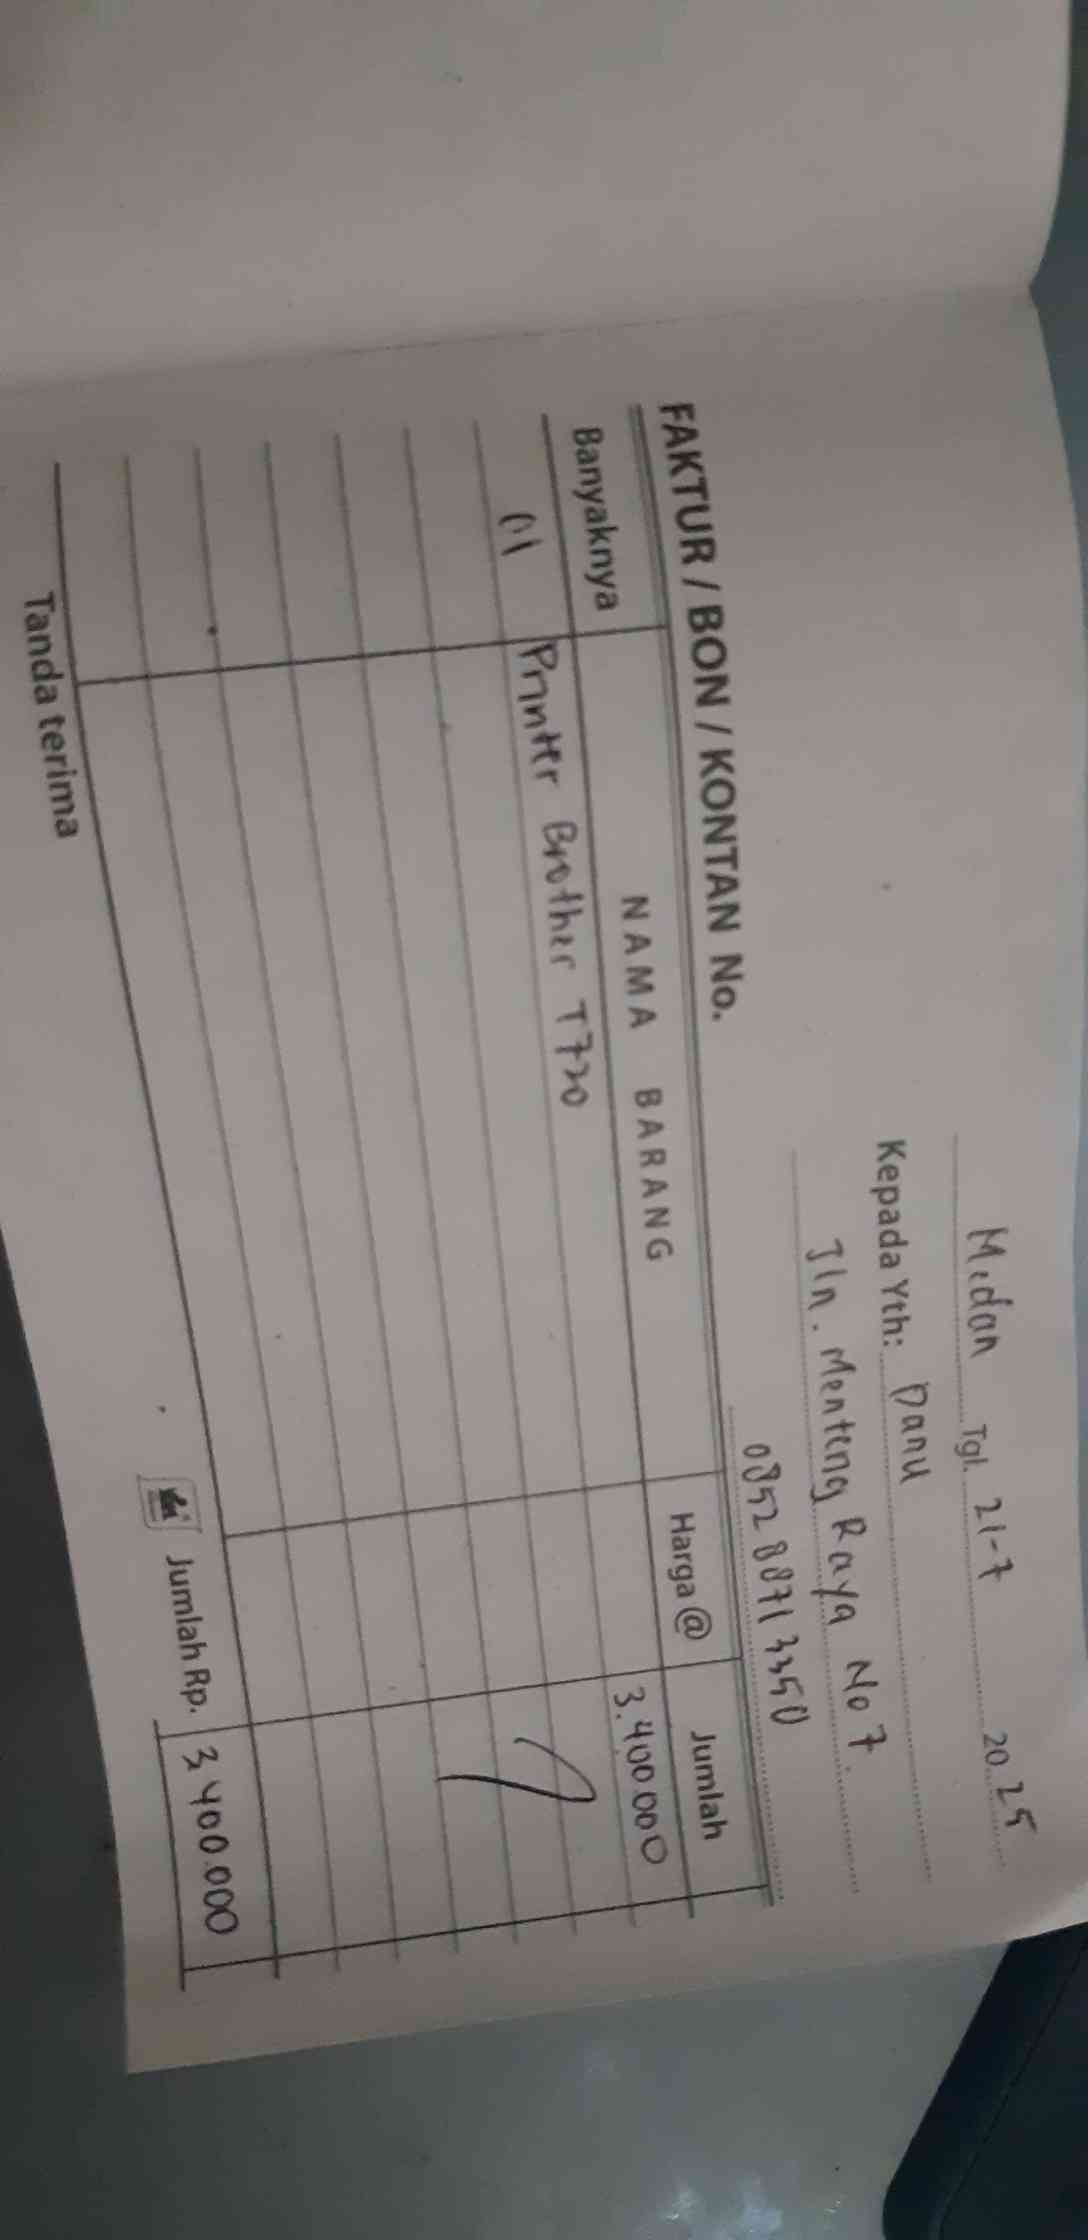 Medan Tgl. 21-7 2025
Kepada Yth: Danu
Jln. Menteng Raya No 7.
0852 8871 3350
FAKTUR / BON / KONTAN No.
Banyaknya NAMA BARANG Harga @ Jumlah
01 Printer Brother T720 3.400.000
Tanda terima Jumlah Rp. 3 400.000